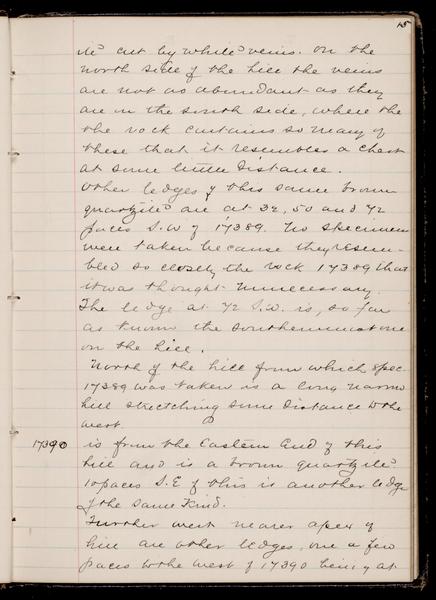 15
ite cut by white veins. On the
north side of the hill the veins
are not as abundant as they
are on the south side, where the
the rock contains so many of
these that it resembles a chert
at some little distance.
Other ledges of this same brown
quartzite are at 32, 50 and 72
paces S.W of 17389. No specimens
were taken because they resem-
bled so closely the rock 17389 that
it was thought unnecessary.
The ledge at 72 S.W. is, so far
as known the southernmost one
on the hill.
North of the hill from which spec.
17389 was taken is a long narrow
hill stretching some distance to the
west.
17390 is from the Eastern End of this
hill and is a brown quartzite.
10 paces S.E of this is another ledge
of the same kind.
Further west nearer apex of
hill are other ledges, one a few
paces to the west of 17390 being at